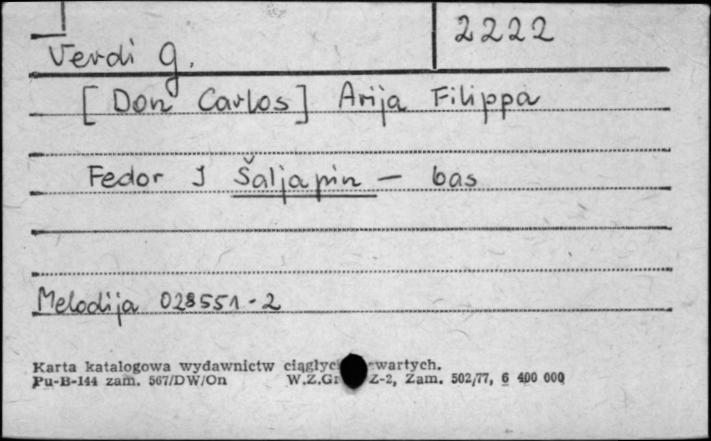 2222
Verdi G.
[Don Carlos] Arija Filippa
Fedor I Šaljapin – bas
Melodija 028551-2
Karta katalogowa wydawnictw wartych.
Pu-B-144 zam. 567/DW/On W.Z.Gr Z-2, Zam. 502/77, 6 400 000